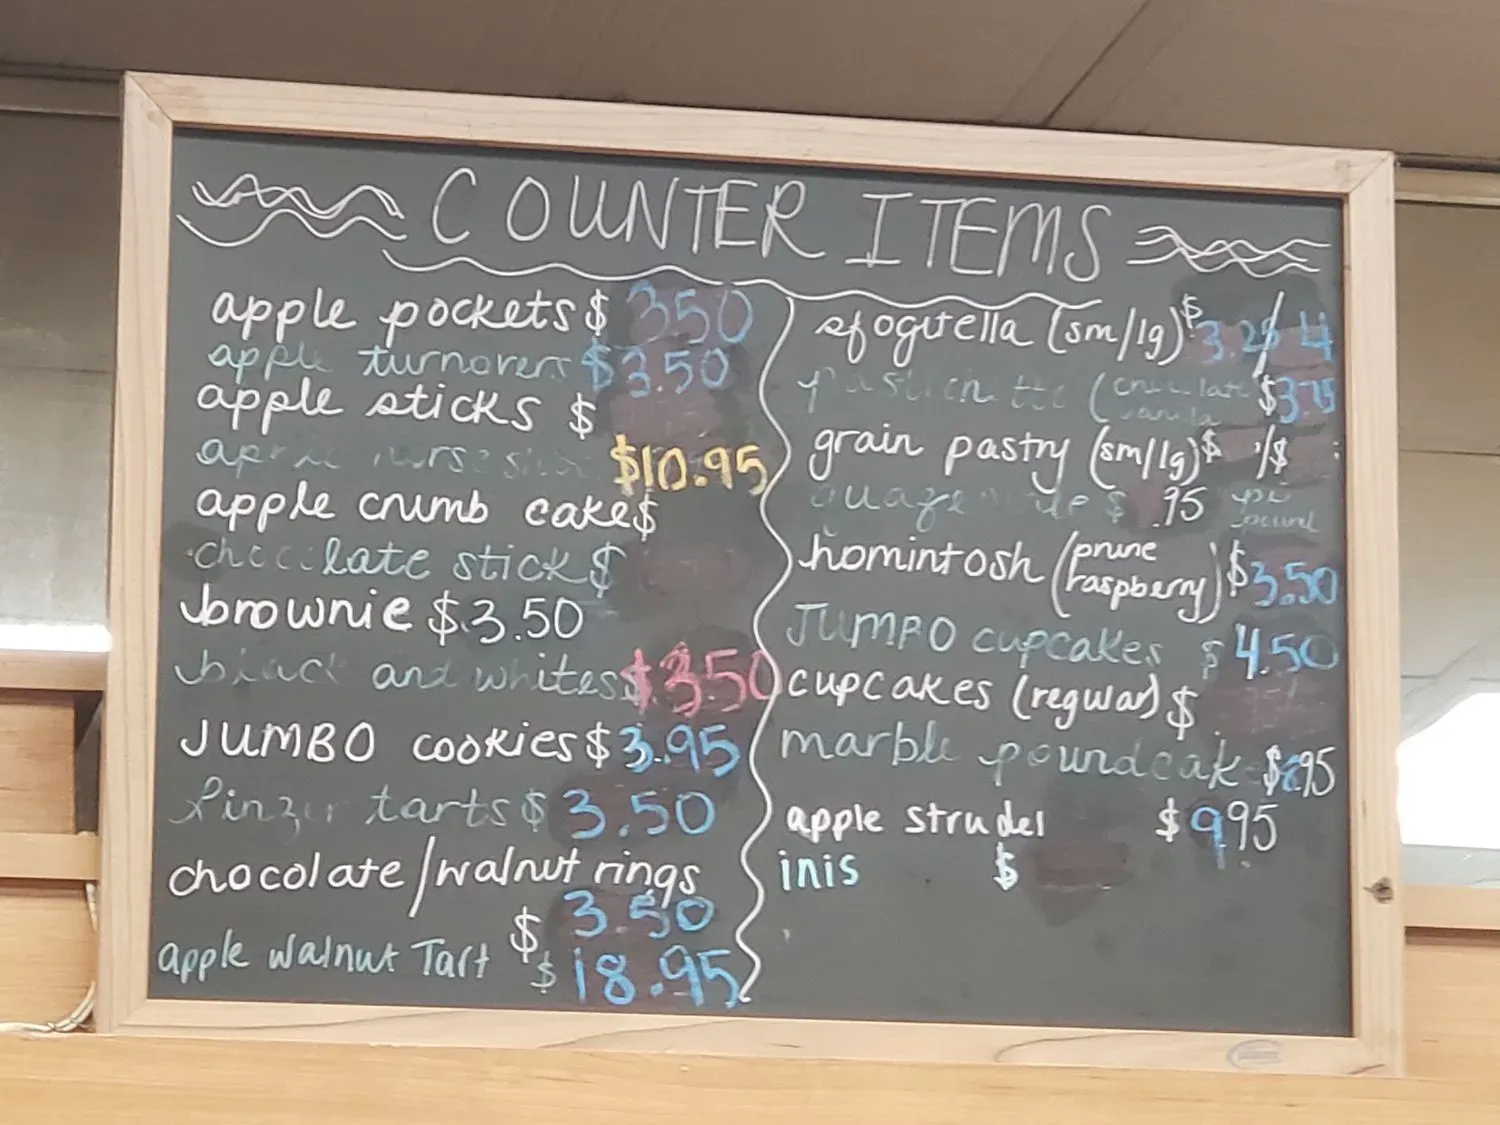 COUNTER ITEMS
apple pockets $ 3.50
apple turnovers $3.50
apple sticks $
$10.95
apple crumb cake $
chocolate stick $
brownie $3.50
black and whites $3.50
JUMBO cookies $3.95
Linzer tarts $3.50
chocolate/walnut rings
$ 3.50
apple walnut Tart $18.95
sfogitella (sm/lg) $3.25/4
(chocolate $3.75
vanilla
grain pastry (sm/lg) $ /$
$ .95 per
pound
homintosh (prune
raspberry) $3.50
JUMBO cupcakes $4.50
cupcakes (regular) $
marble poundcake $8.95
apple strudel $9.95
inis $